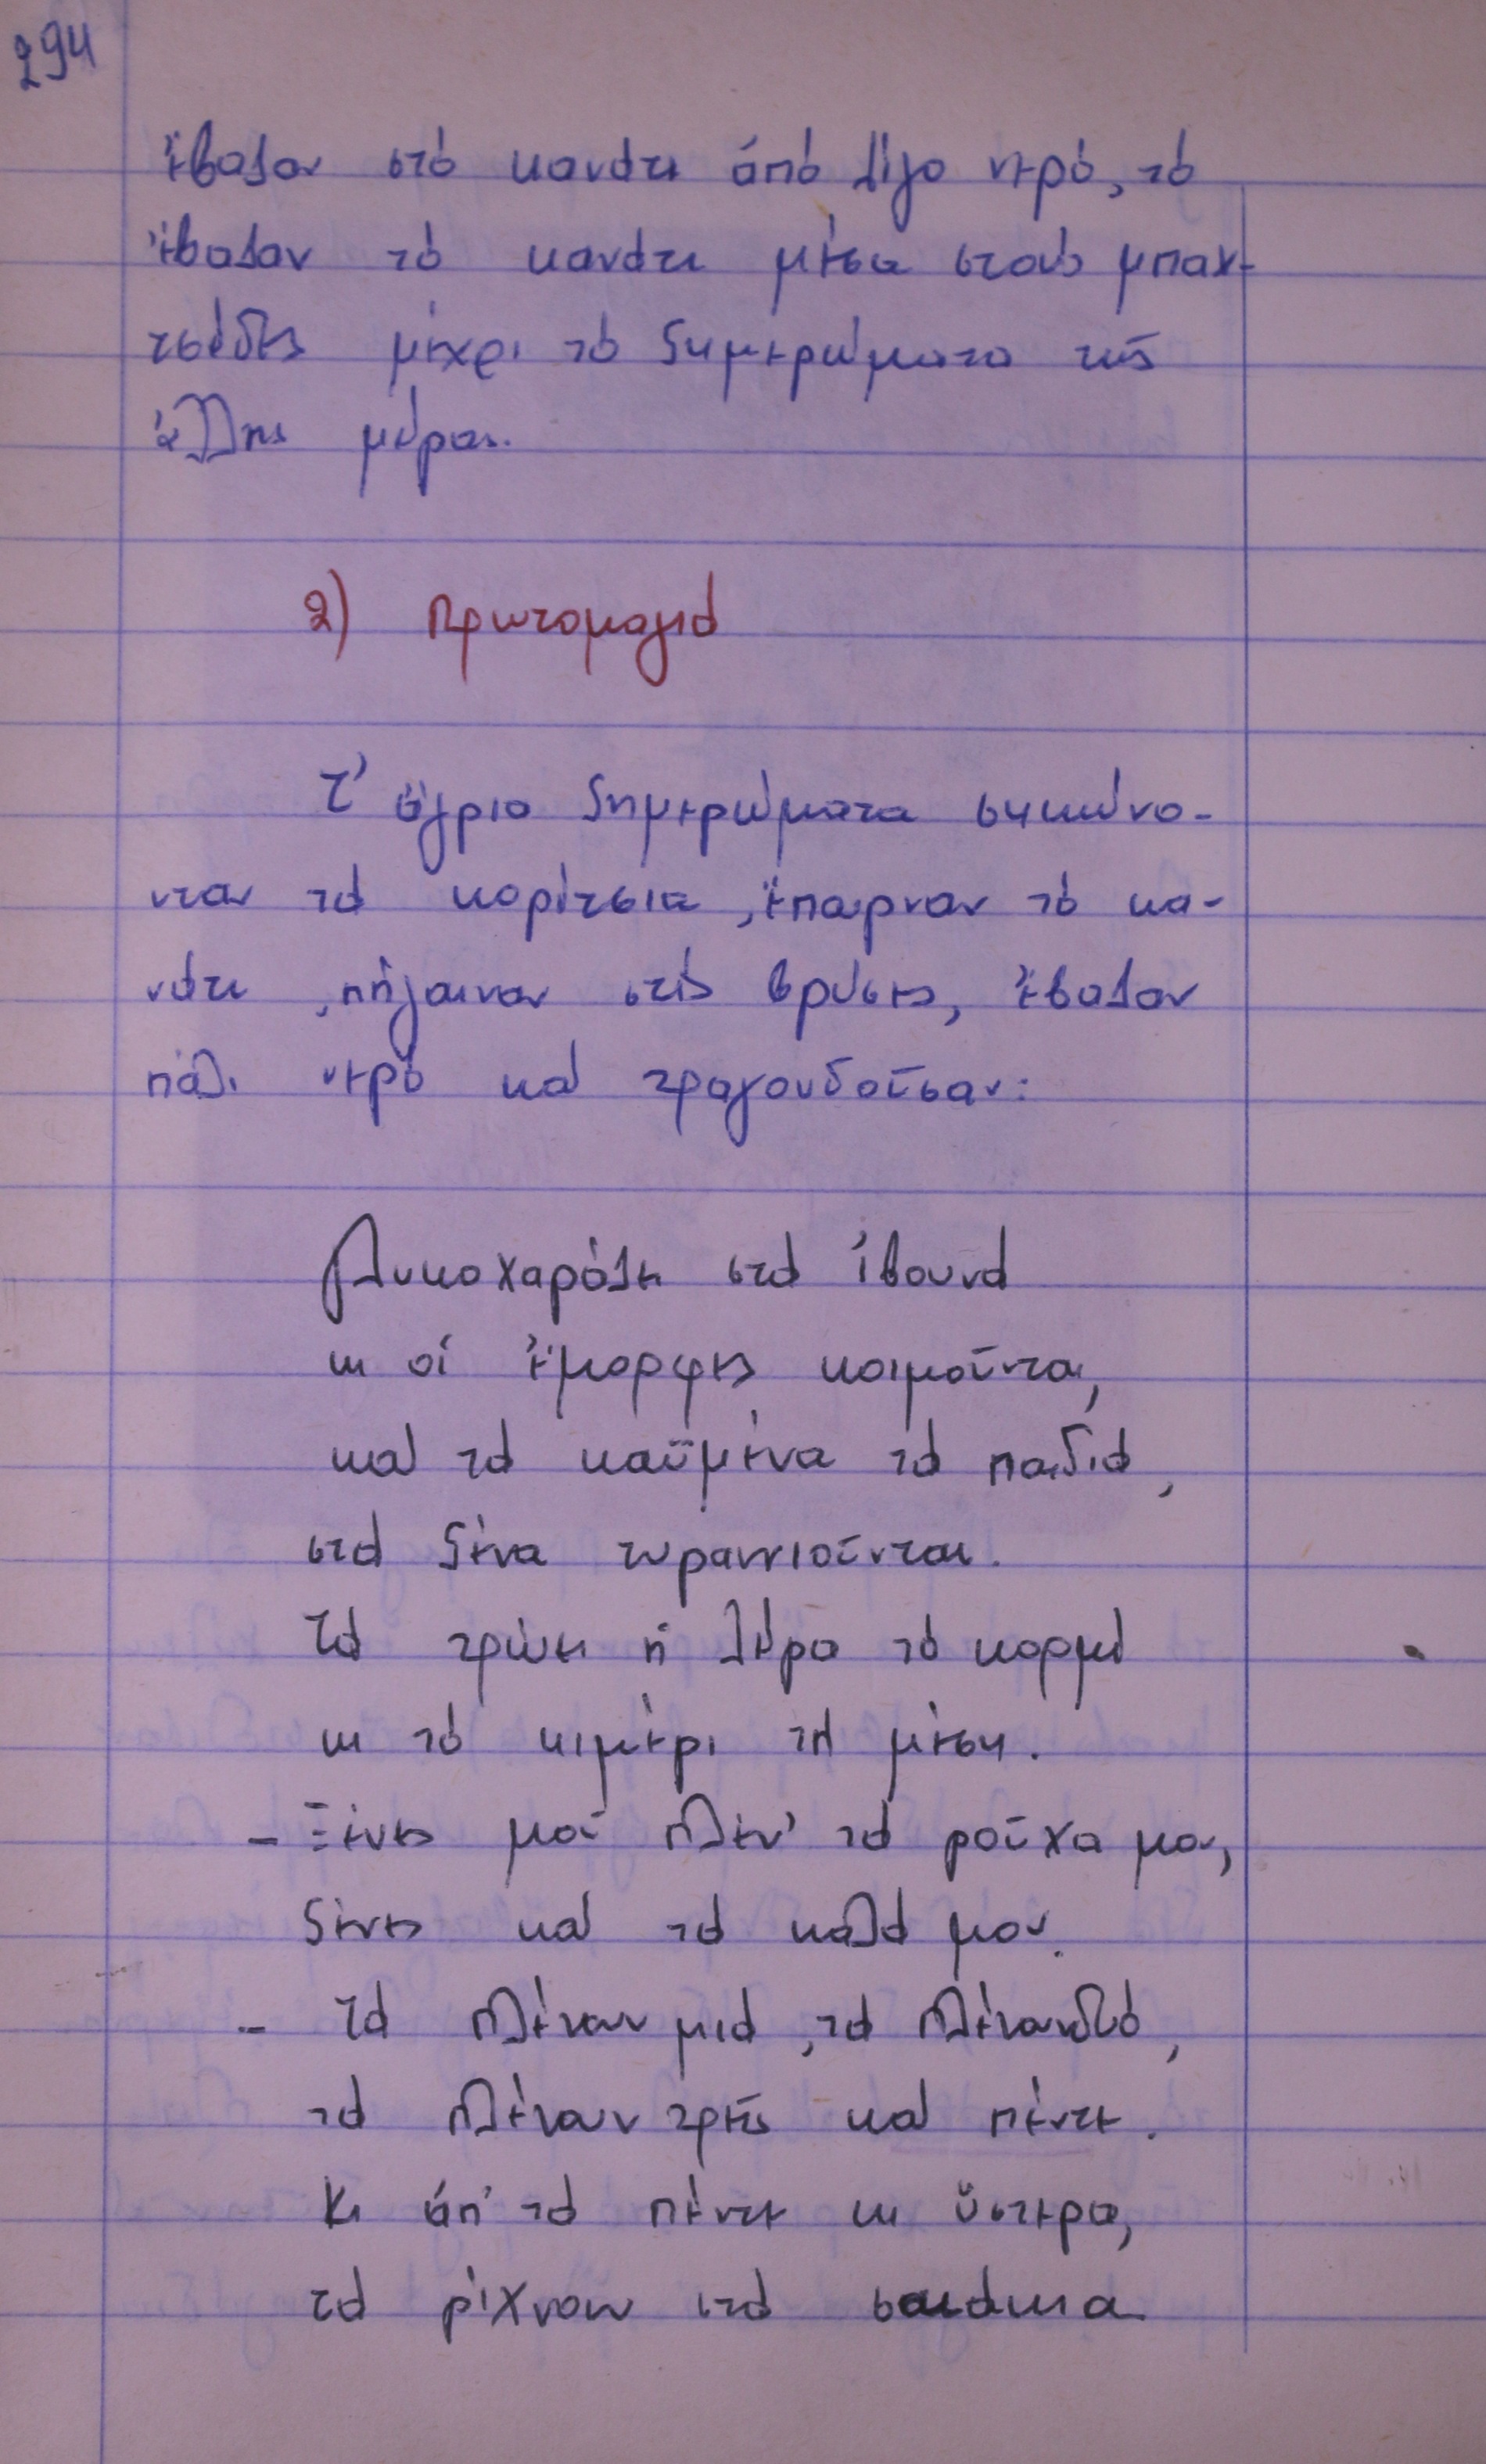 294
ἔβαζαν στό κανάτι ἀπό λίγο νερό, τό
ἔβαζαν τό κανάτι μέσα στούς μπαχ-
τσέδες μέχρι τό ξημερώματα τῆς
ἄλλης μέρας.
2) Πρωτομαγιά
Τ' ἄγρια ξημερώματα σηκώνο-
νταν τά κορίτσια, ἔπαιρναν τό κα-
νάτι, πήγαιναν στίς βρύσες, ἔβαζαν
πάλι νερό καί τραγουδοῦσαν:
Γλυκοχαράζει στά ἰβουνά
κι οἱ ἔμορφες κοιμοῦνται,
καί τά καϋμένα τά παιδιά,
στά ξένα τυραννιοῦνται.
Τά τρώει ἡ λέρα τό κορμί
κι τό κιμέρι τή μέση.
- Ξένες μοῦ πλέν' τά ροῦχα μου,
ξένες καί τά καλά μου.
- Τά πλένουν μιά, τά πλένουν δυό,
τά πλένουν τρεῖς καί πέντε.
Κι ἀπ' τά πέντε κι ὕστερα,
τά ρίχνουν στά σοκάκια